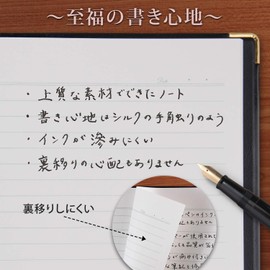 ～至福の書き心地～
・上質な素材でできたノート
・書き心地はシルクの手触りのよう
・インクが滲みにくい
・裏移りの心配もありません
裏移りしにくい